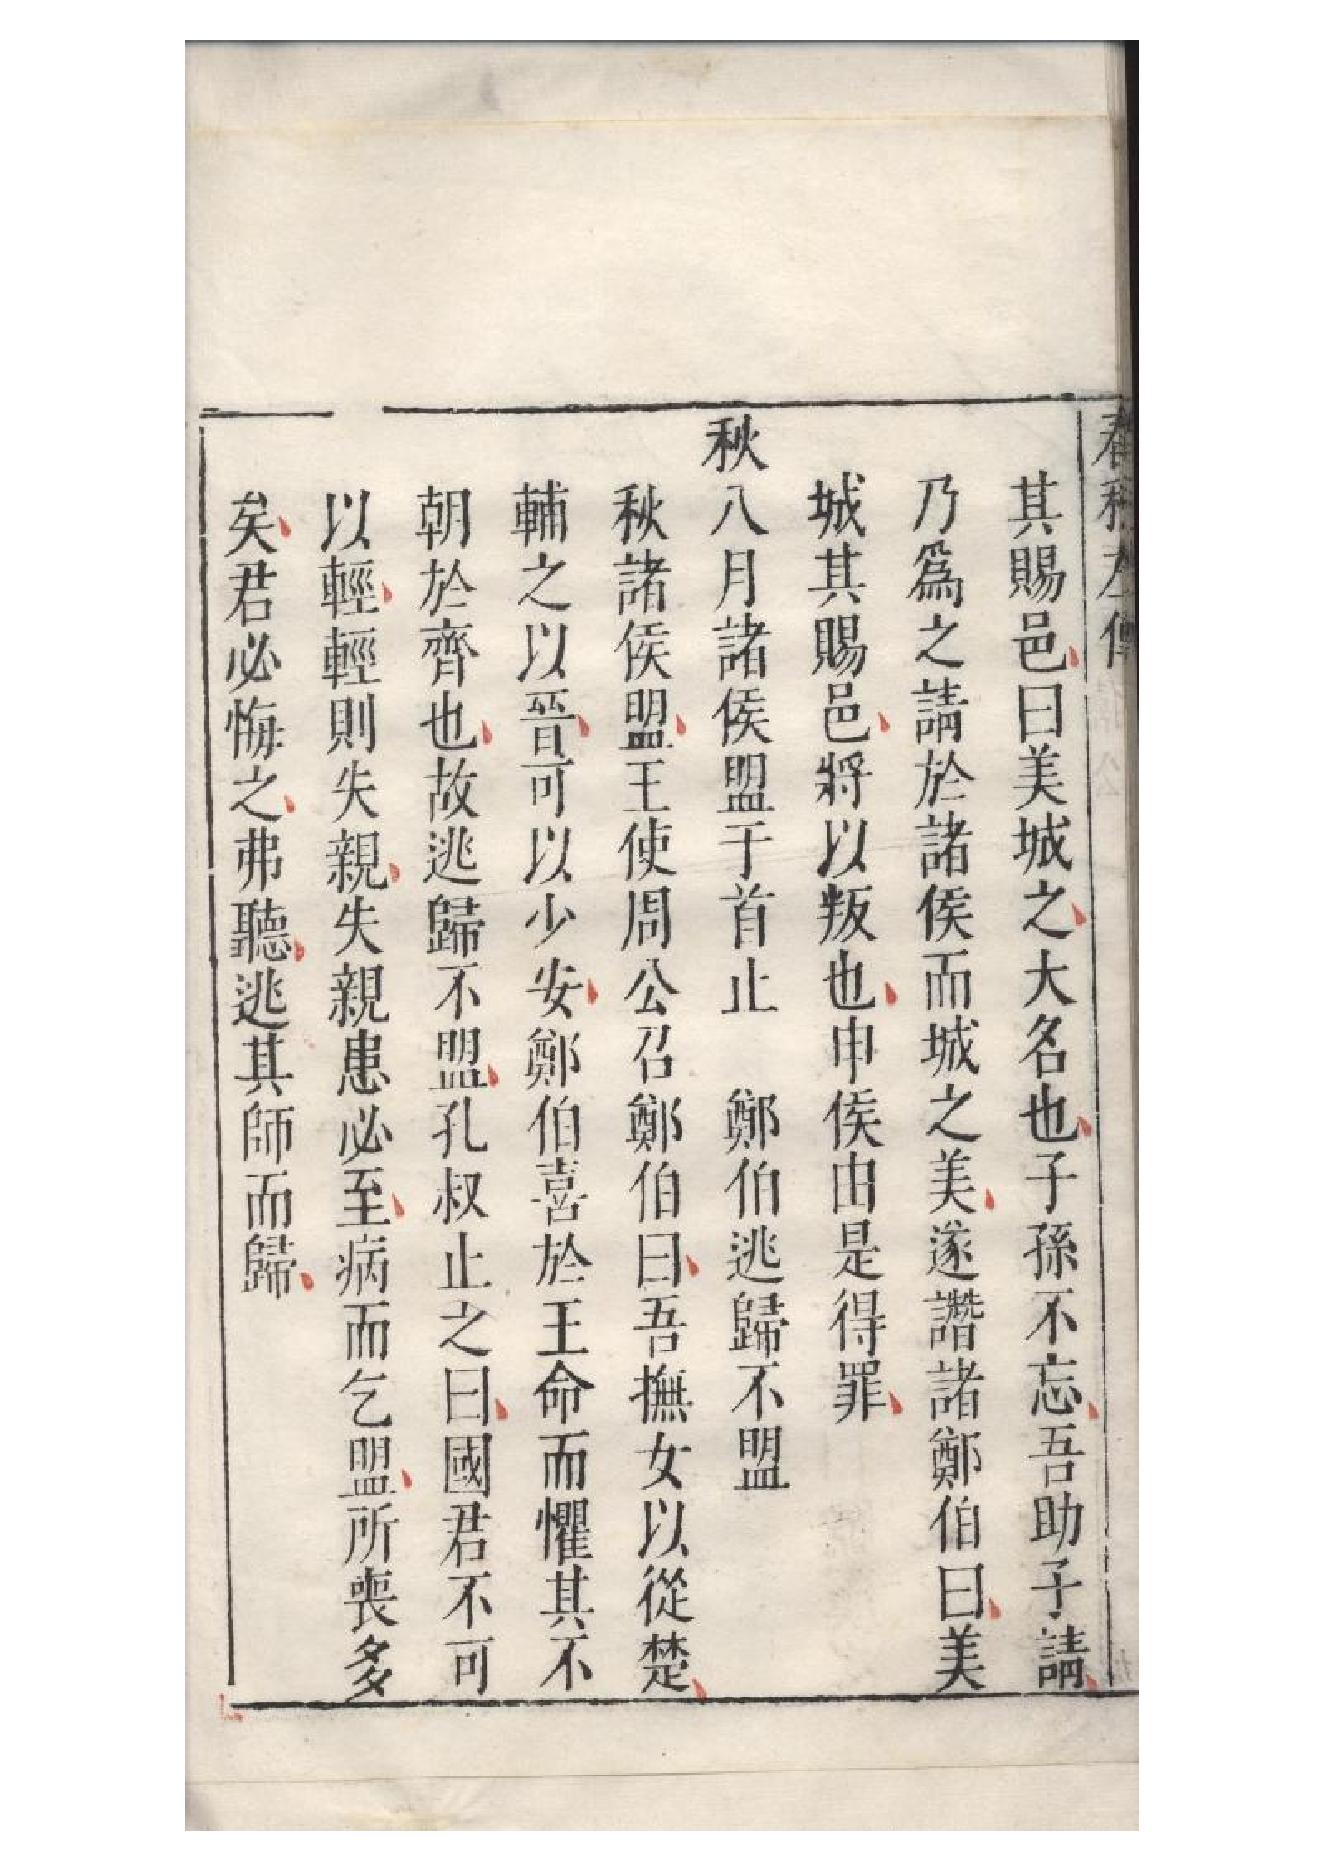 春秋左傳
其賜邑曰美城之大名也子孫不忘吾助子請
乃爲之請於諸侯而城之美遂譖諸鄭伯曰美
城其賜邑將以叛也申侯由是得罪
秋八月諸侯盟于首止　鄭伯逃歸不盟
秋諸侯盟王使周公召鄭伯曰吾撫女以從楚
輔之以晉可以少安鄭伯喜於王命而懼其不
朝於齊也故逃歸不盟孔叔止之曰國君不可
以輕輕則失親失親患必至病而乞盟所喪多
矣君必悔之弗聽逃其師而歸